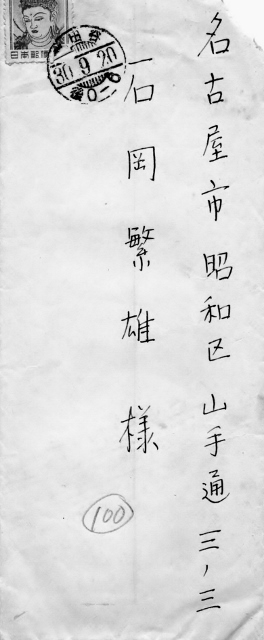 名古屋市昭和区山手通三ノ三
石岡繁雄様
日本郵便
30.9.20
100